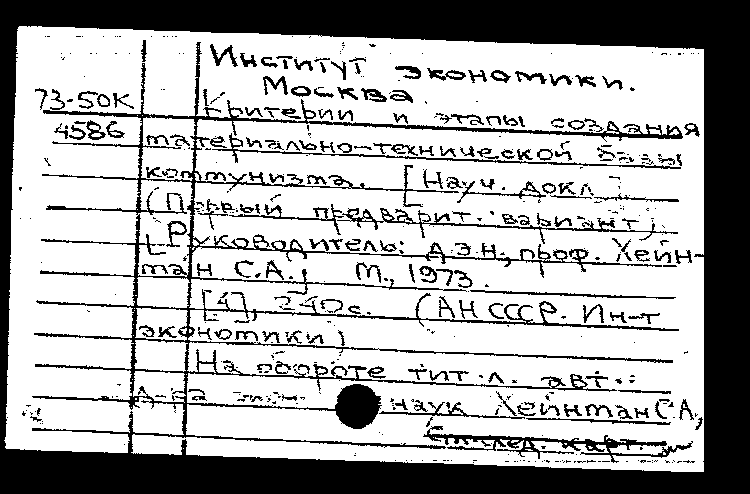 Институт экономики.
Москва.
73-50К Критерии и этапы создания
4586 материально-технической базы
коммунизма. [Науч. докл.]
(Первый предварит. вариант)
[Руководитель: д.э.н., проф. Хейн-
ман С.А.] М., 1973.
[4], 240с. (АН СССР. Ин-т
экономики)
На обороте тит.л. авт.:
д-ра экон. наук Хейнман С.А.,
См.след. карт.